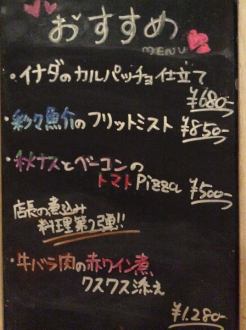 おすすめ
MENU
・イナダのカルパッチョ仕立て
¥680-
・彩々魚介のフリットミスト ¥850-
・秋ナスとベーコンの
トマトPizza ¥500-
店長の煮込み
料理第2弾!!
・牛バラ肉の赤ワイン煮
クスクス添え
¥1.280-